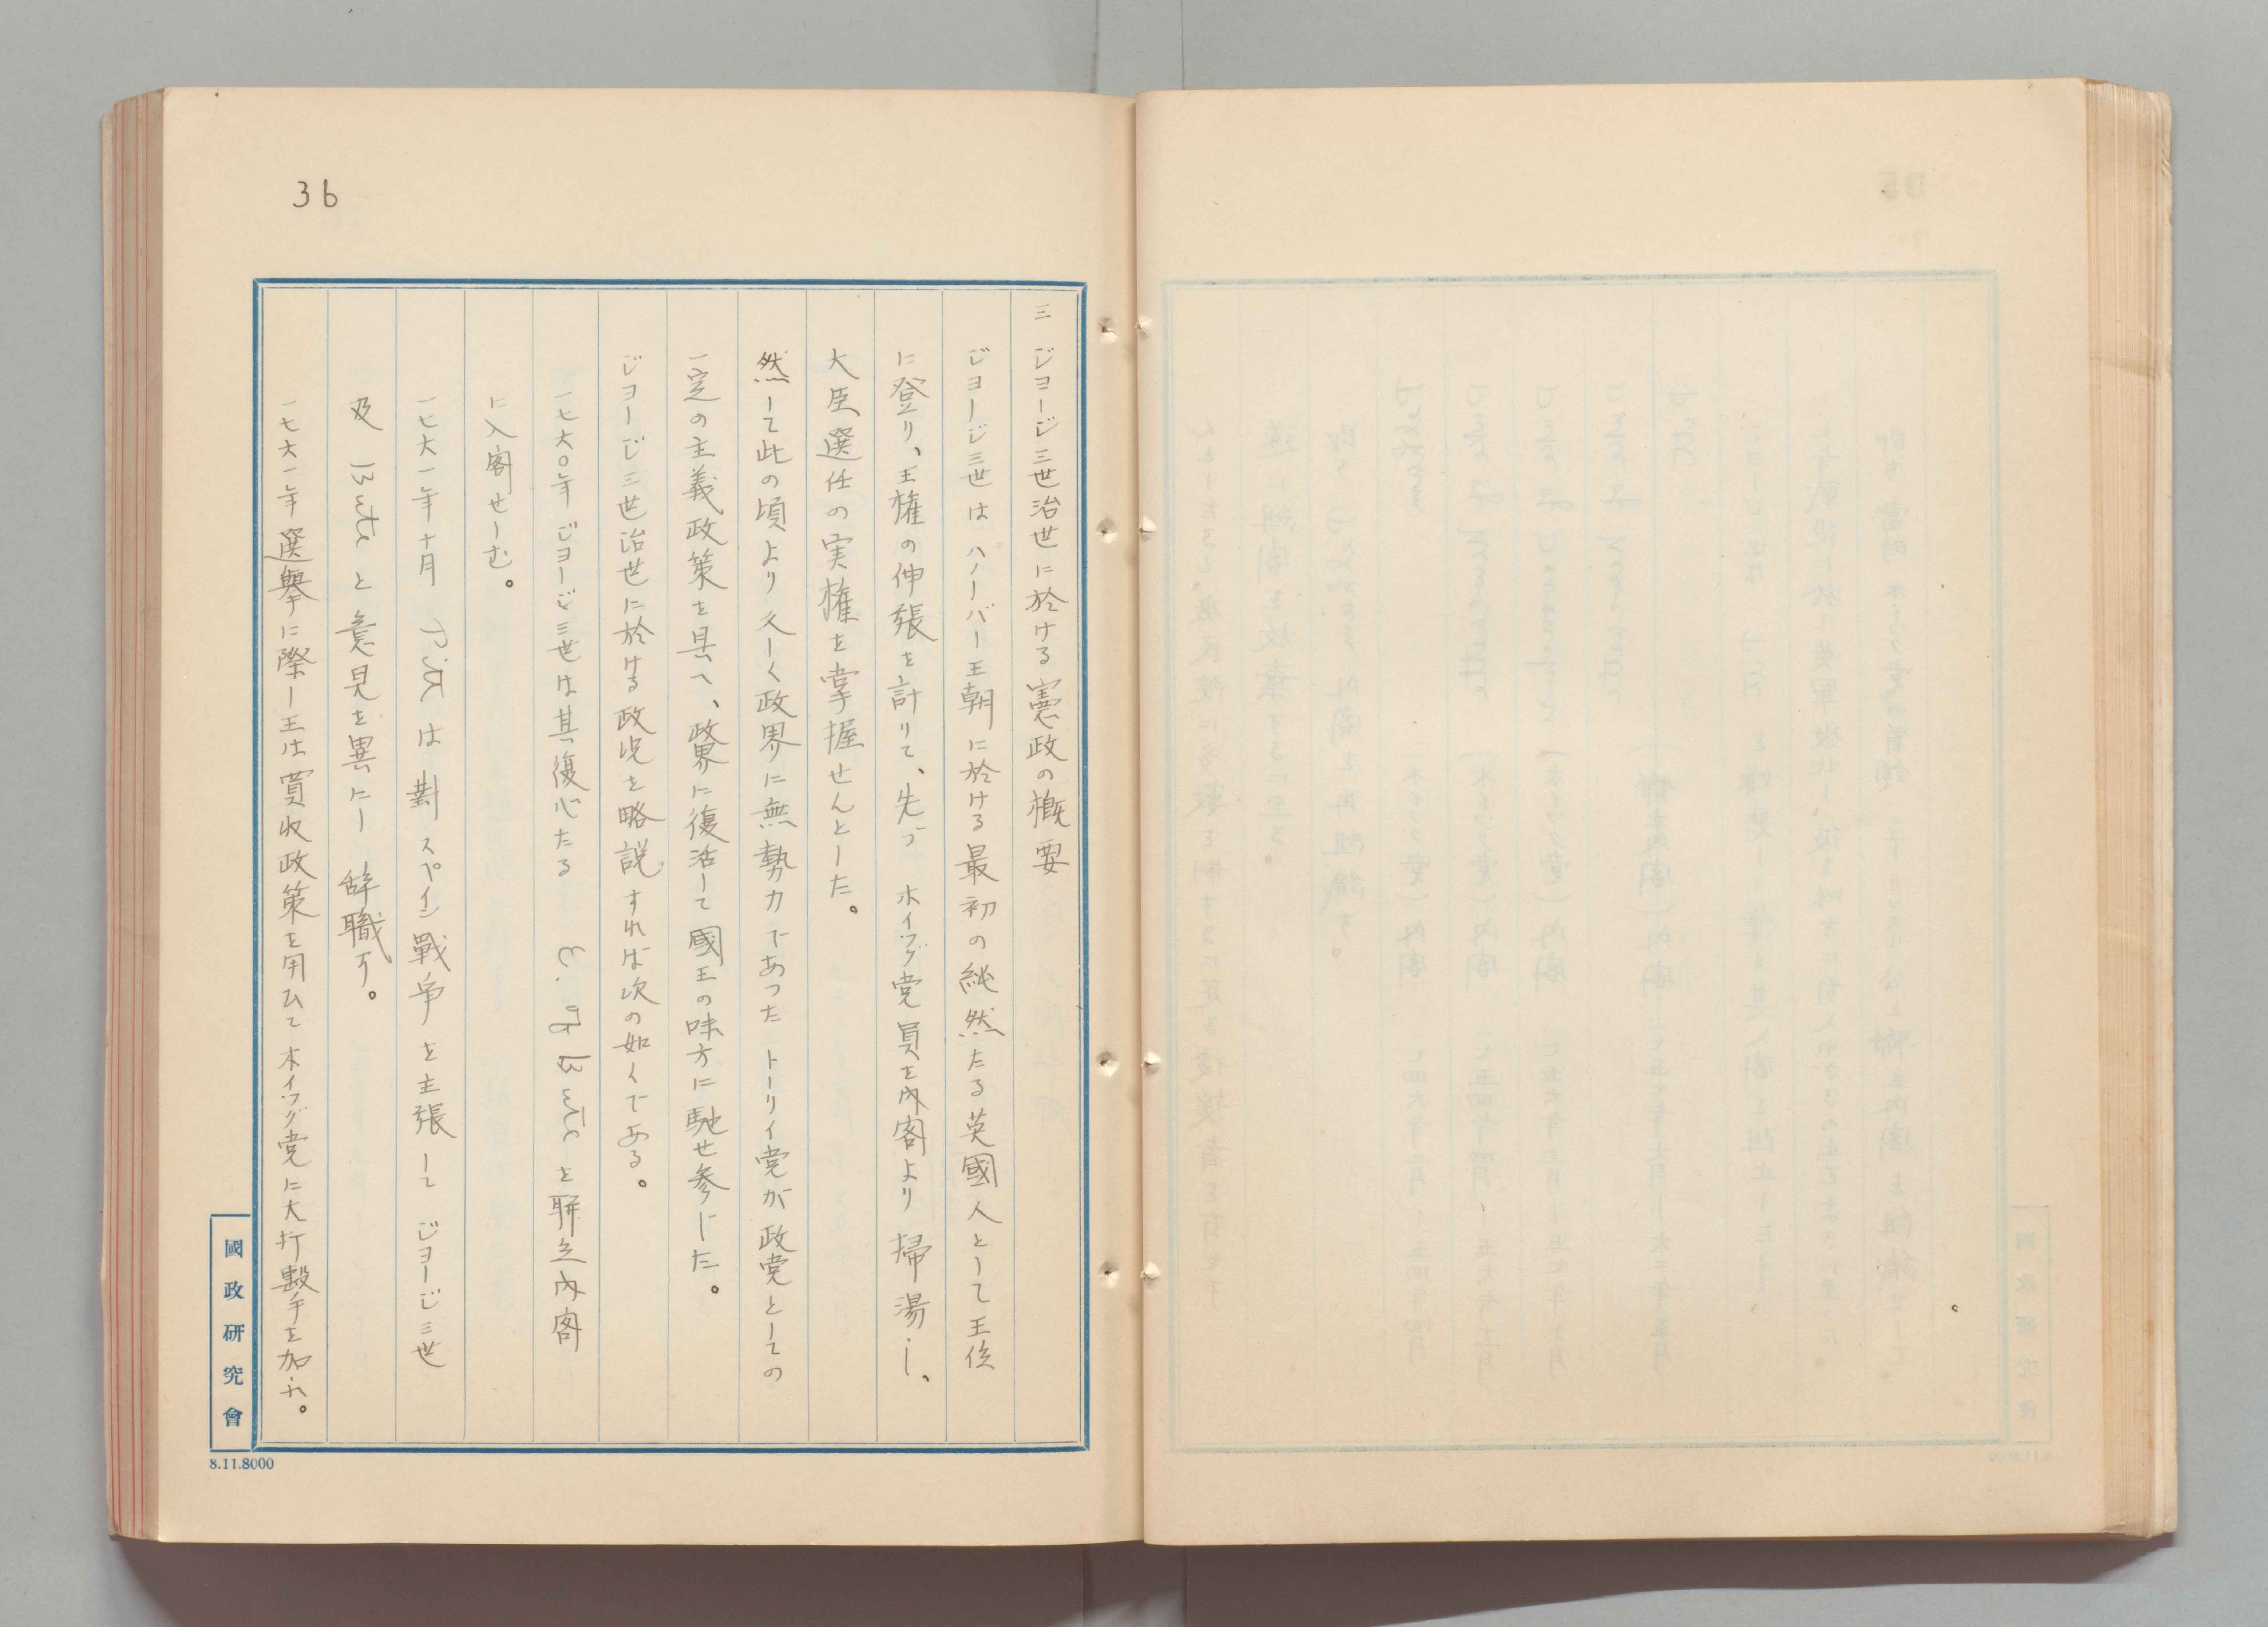 36
三 ジョージ三世治世に於ける憲政の概要
ジョージ三世はハノーバー王朝に於ける最初の純然たる英國人として王位
に登り、王権の伸張を計りて、先づ ホイッグ党員を内閣より掃蕩し、
大臣選任の実権を掌握せんとした。
然して此の頃より久しく政界に無勢力であったトーリイ党が政党としての
一定の主義政策を具へ、政界に復活して國王の味方に馳せ参じた。
ジョージ三世治世に於ける政况を略説すれば次の如くである。
一七六〇年ジョージ三世は其復心たる E. of Bute と聯立内閣
に入閣せしむ。
一七六一年十月 Pitt は對スペイン戰争を主張して ジョージ三世
及 Bute と意見を異にし 辞職す。
一七六一年選擧に際し王は買収政策を用ひてホイッグ党に大打擊を加ふ。
國政研究會
8.11.8000